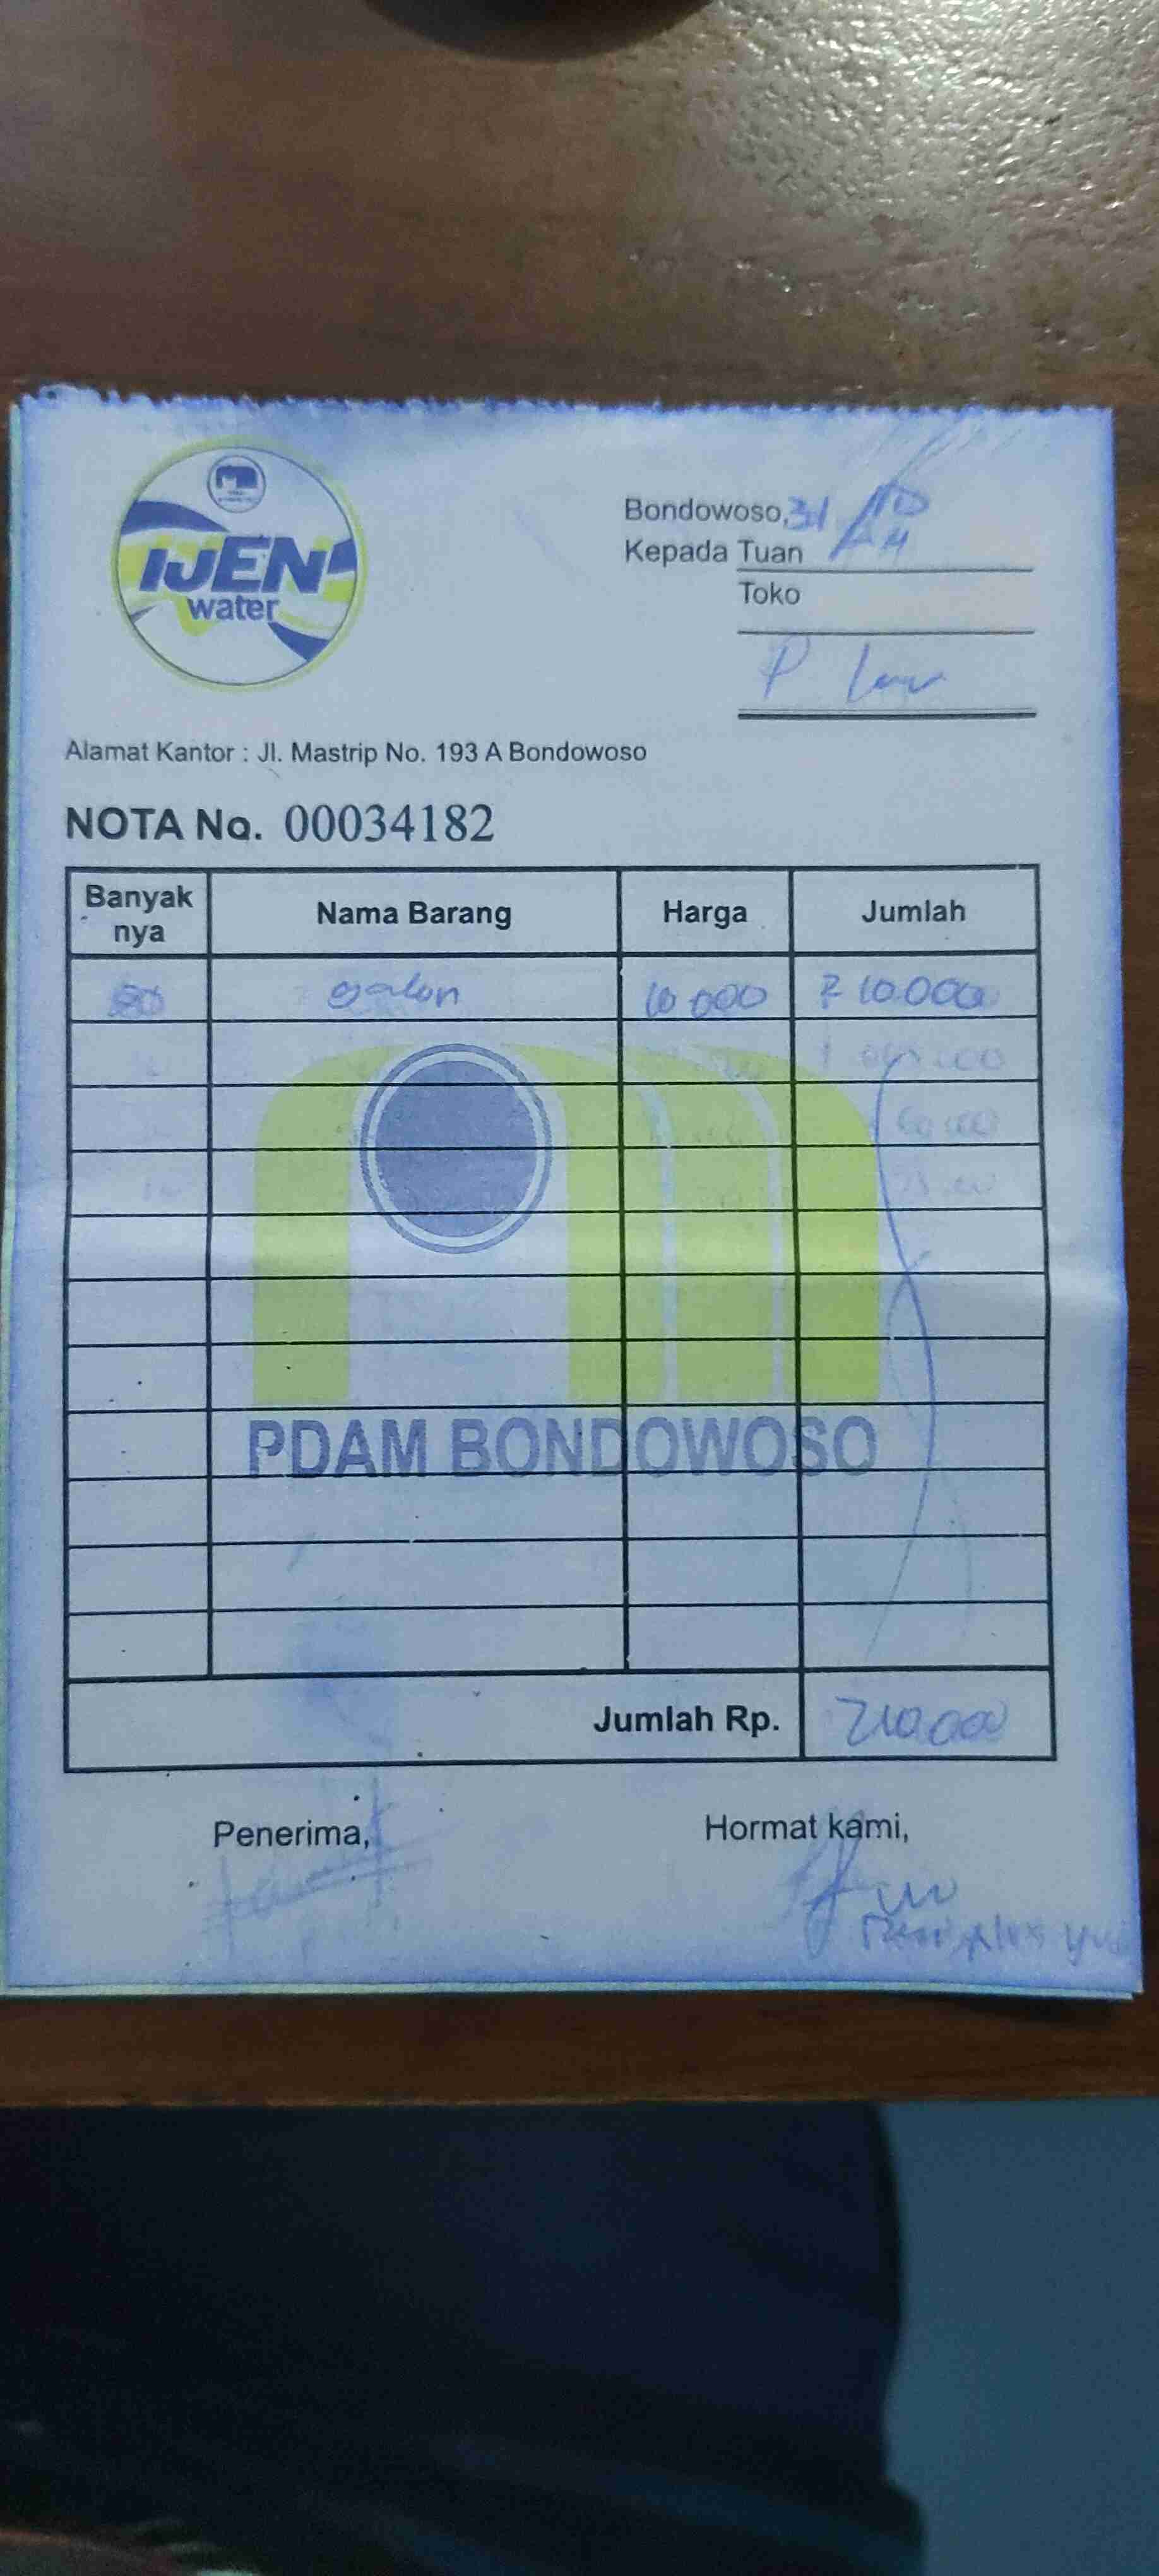 IJEN
water
Bondowoso, 31
Kepada Tuan
Toko
P
Alamat Kantor : Jl. Mastrip No. 193 A Bondowoso
NOTA No. 00034182
Banyak nya Nama Barang Harga Jumlah
galon 10.000 210.000
PDAM BONDOWOSO
Jumlah Rp. 210.000
Penerima, Hormat kami,